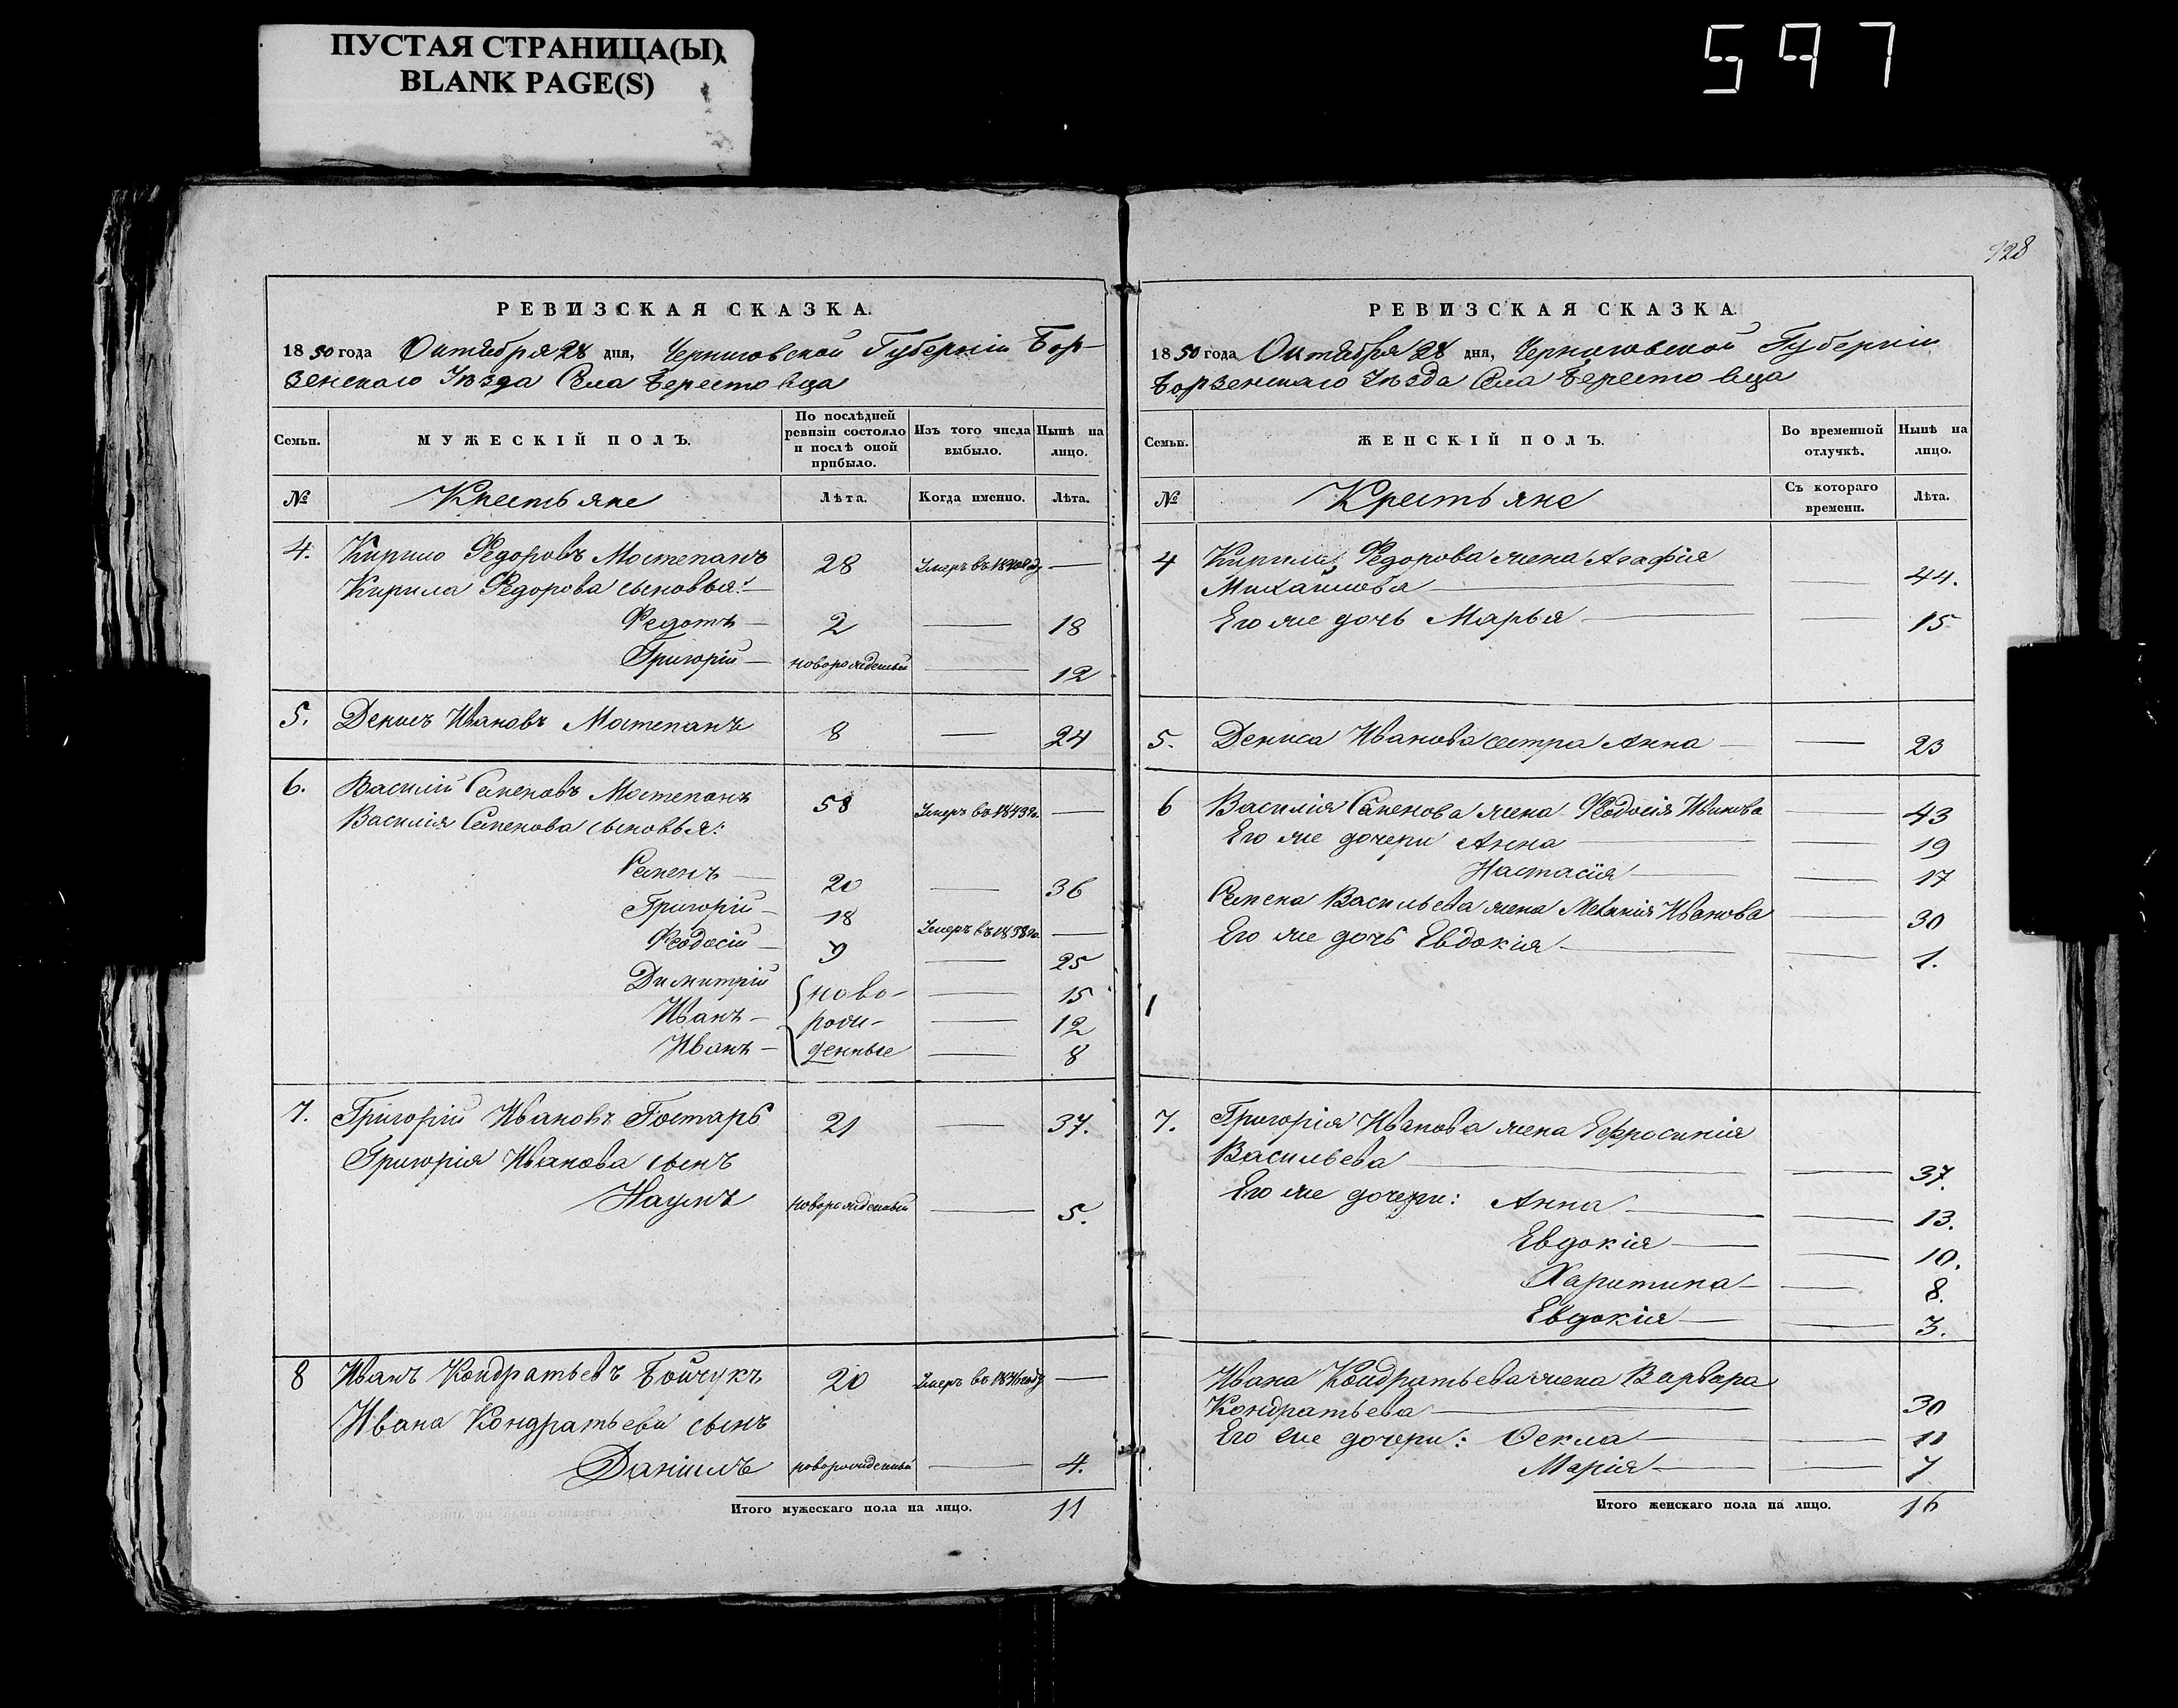 ПУСТАЯ СТРАНИЦА(Ы)
BLANK PAGE(S)
597
128
РЕВИЗСКАЯ СКАЗКА.
1850 года Октября 28 дня, Черниговской Губерніи Бор-
зенскаго Уѣзда Села Берестовца
Семьи.
МУЖЕСКІЙ ПОЛЪ.
По послѣдней ревизіи состояло и послѣ оной прибыло.
Изъ того числа выбыло.
Нынѣ на лицо.
№ Крестьяне Лѣта. Когда именно. Лѣта.
4. Кирило Ѳедоровъ Мостепанъ 28 Умеръ въ 1840 году —
Кирила Ѳедорова сыновья: —
Ѳедотъ — 2 — 18
Григорій — новорожденный — 12
5. Денисъ Ивановъ Мостепанъ 8 — 24
6. Василій Семеновъ Мостепанъ 58 Умеръ въ 1843 го. —
Василія Семенова сыновья:
Семенъ — 20 — 36
Григорій — 18 Умеръ въ 1838 го. —
Ѳеодосій — 9 — 25
Димитрій ново- — 15
Иванъ — рож- — 12
Иванъ — денные — 8
7. Григорій Ивановъ Гостарь 21 — 37.
Григорія Иванова сынъ
Наумъ новорожденный — 5.
8 Иванъ Кондратьевъ Бойчукъ 20 Умеръ въ 1846 году —
Ивана Кондратьева сынъ
Даніилъ новорожденный — 4.
Итого мужескаго пола на лицо. 11
РЕВИЗСКАЯ СКАЗКА.
1850 года Октября 28 дня, Черниговской Губерніи
Борзенскаго Уѣзда Села Берестовца
Семьи.
ЖЕНСКІЙ ПОЛЪ.
Во временной отлучкѣ.
Нынѣ на лицо.
№ Крестьяне Съ котораго времени. Лѣта.
4 Кирила Ѳедорова жена Агафія
Михайлова — — 44.
Его же дочь Марья — — 15
5. Дениса Иванова сестра Анна — — 23
6 Василія Семенова жена Ѳеодосія Иванова — 43
Его же дочери Анна — — 19
Настасія — — 17
Семена Васильева жена Меланія Иванова — 30
Его же дочь Евдокія — — 1.
7. Григорія Иванова жена Ефросинія
Васильева — — 37.
Его же дочери: Анна — — 13.
Евдокія — — 10.
Харитина — — 8.
Евдокія — — 3.
Ивана Кондратьева жена Варвара
Кондратьева — 30
Его же дочери: Ѳекла — — 11
Марія — — 7
Итого женскаго пола на лицо. 16